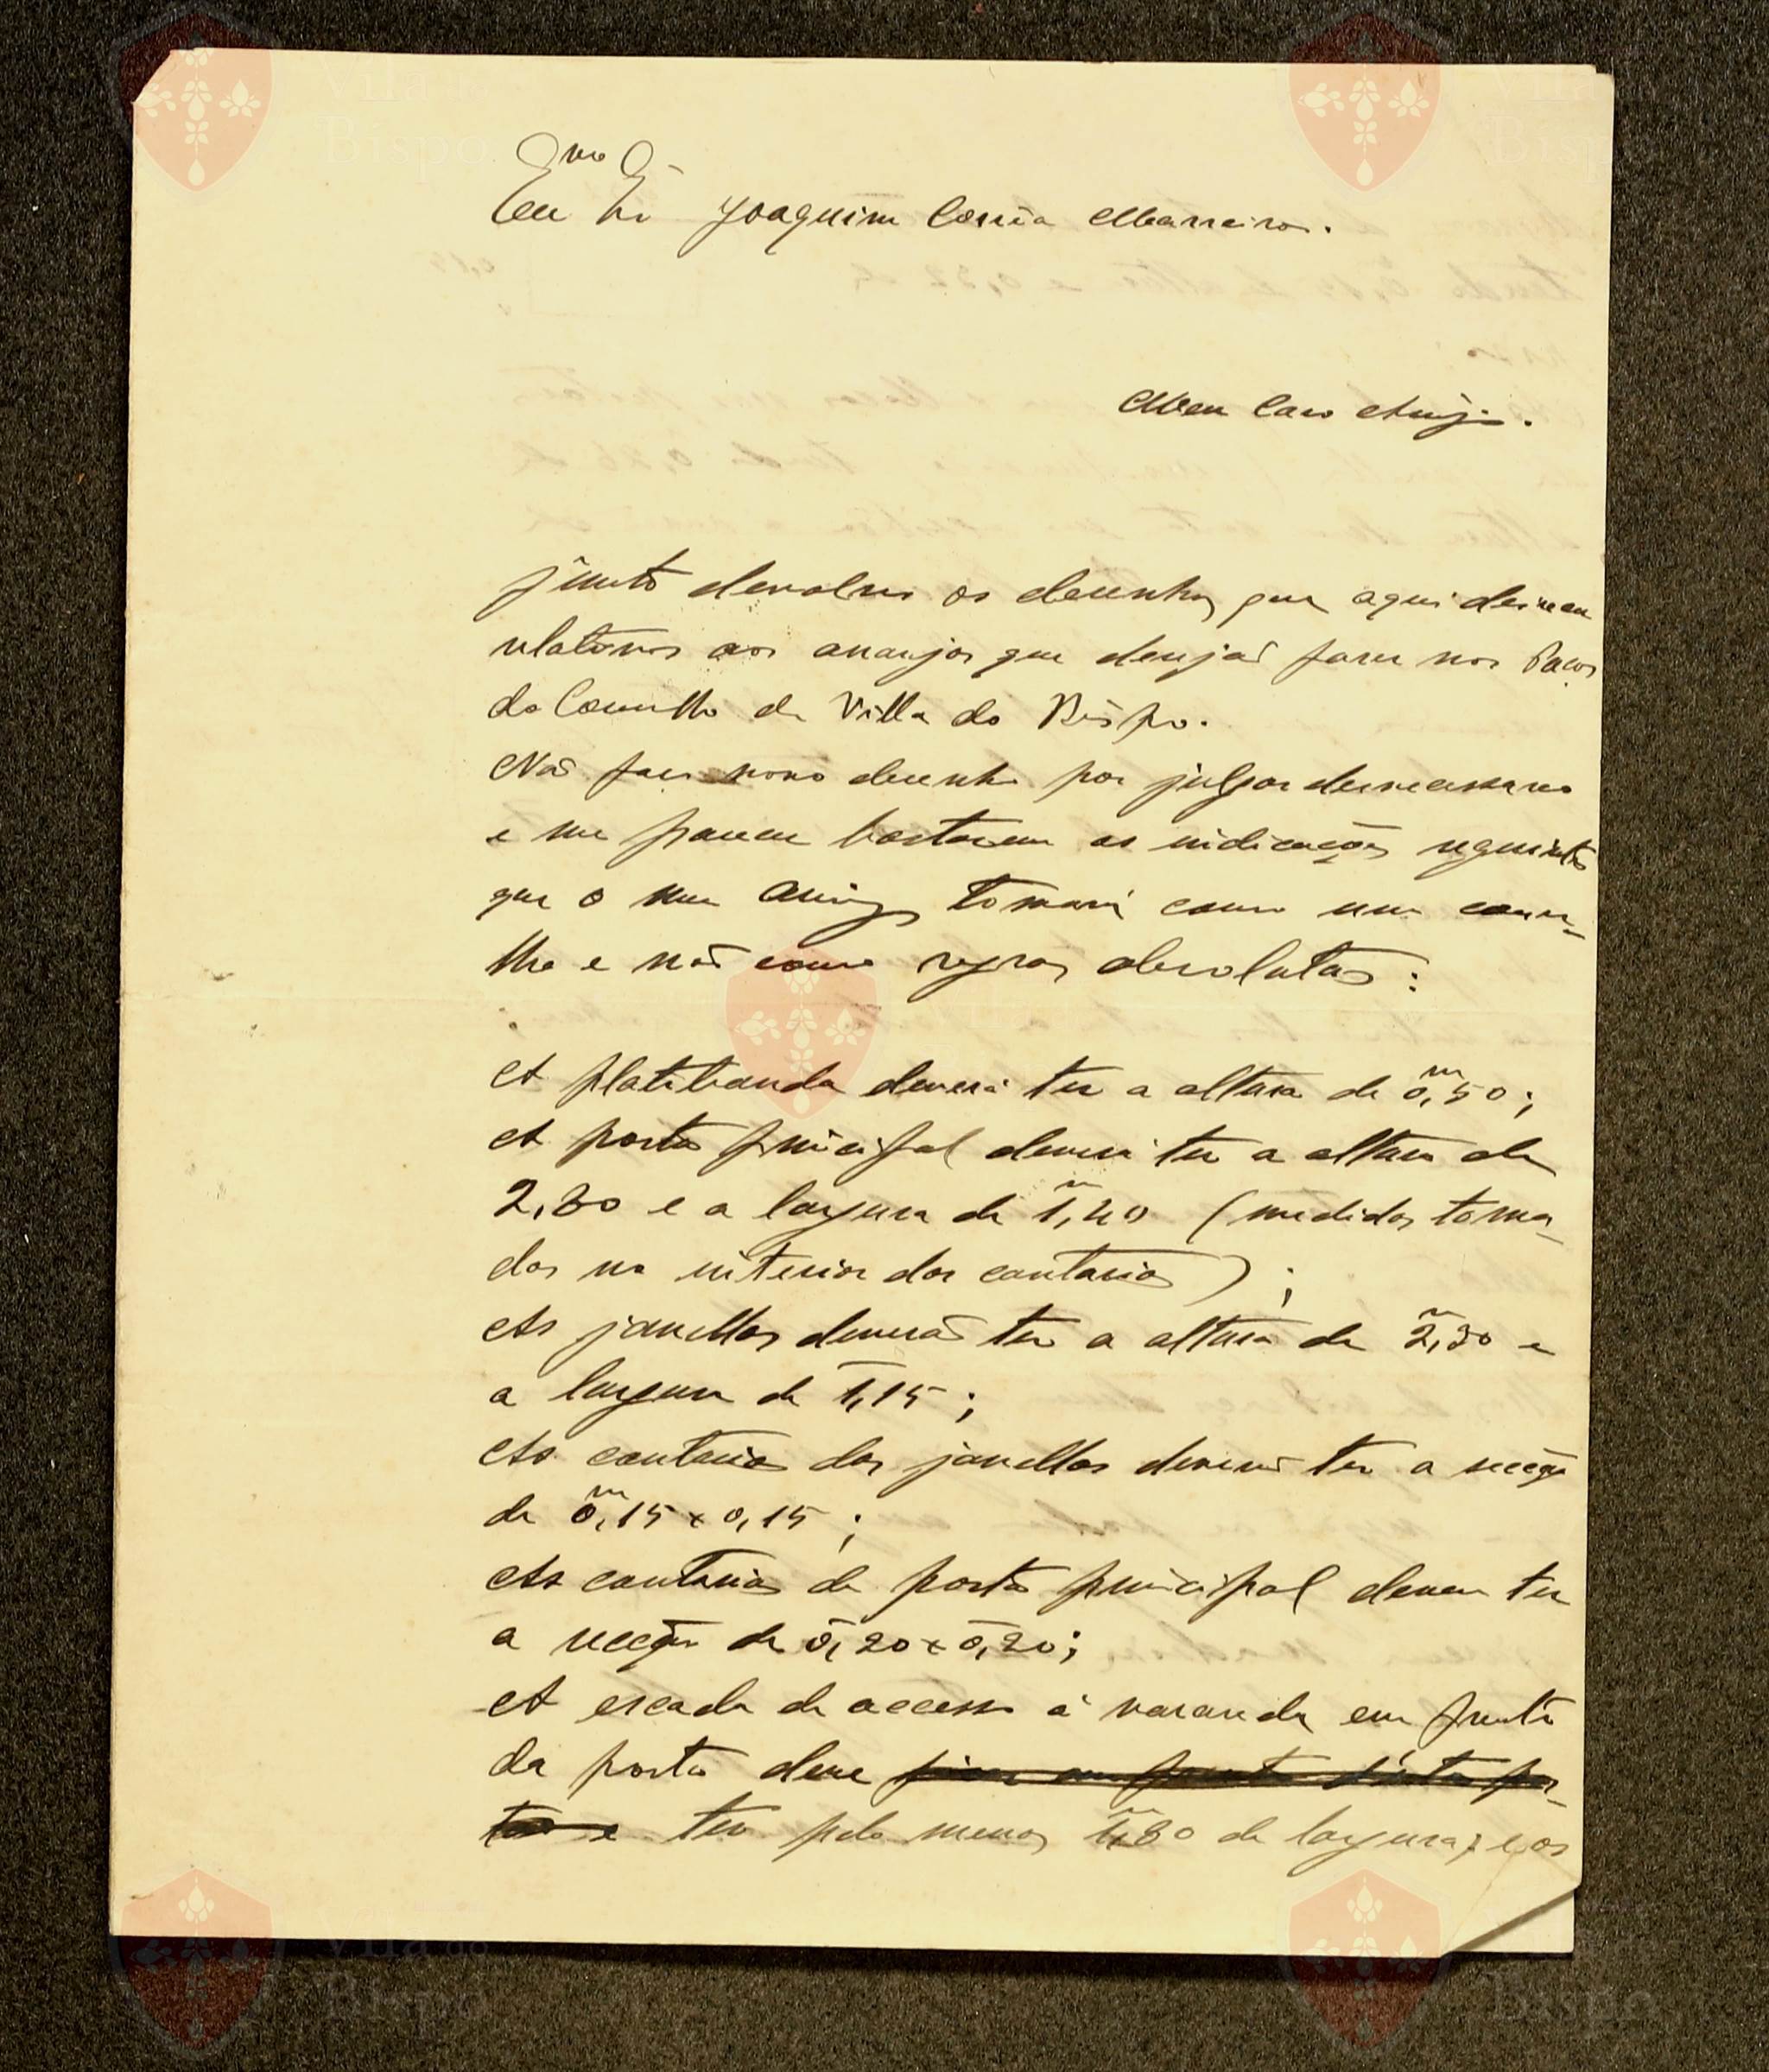 Exmo Sr Joaquim Corrêa Marreiros.
Meu Caro Amigo.
Junto devolvo os desenhos que aqui deixou
relativos aos arranjos que desejaes fazer nos Paços
do Concelho de Villa do Bispo.
Não faço novo desenho por julgar desnecessario
e me parecer bastarem as indicações seguintes
que o meu amigo tomará como um conse-
lho e não como regras absolutas:
A platibanda deverá ter a altura de 0,m50;
A porta principal deverá ter a altura de
2,80 e a largura de 1,m40 (medidas toma-
das no interior das cantarias);
As janellas deverão ter a altura de 2,m30 e
a largura de 1,15;
As cantarias das janellas deverão ter a secção
de 0,m15 x 0,15;
As cantarias da porta principal devem ter
a secção de 0,20 x 0,20;
A escada de accesso á varanda em frente
da porta deve ficar em frente d'esta por-
ta e ter pelo menos 1,m80 de largura; e os
Vila do
Bispo